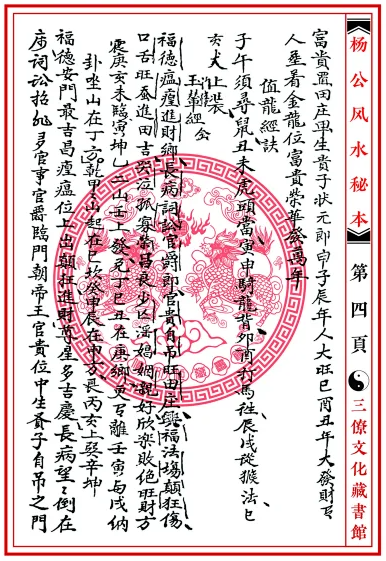 杨公风水秘本
第四頁
三僚文化藏書館
富貴置田庄申生貴子状元郎申子辰年人大旺巳酉丑年大發財
人丕看金龍位富貴榮華發萬年
值龍經訣
子午須尋鼠丑未虎頭當寅申騎龍背卯酉行馬徃辰戌從猴法巳
亥犬上裝
玉輦經會
福德瘟瘟進財鄉長病詞訟官爵郎官貴自吊旺田庄興福法塲顛狂傷
口舌旺蚕進田吉哭泣孤寡衆昌長少亡淫娼姻親好欣楽敗絶旺財方
震庚亥未臨寅坤乙二山壬上發兑丁巳丑在庚鄉更離壬寅与戌納
卦坐山在丁方乾甲山起在巳坎癸申辰在申方艮丙亥上癸辛坤
福德安門最吉昌瘟瘟位上出顛狂進財尊星多吉慶長病望倒在
床詞訟招非多官事官爵臨門朝帝王官貴位中生貴子自吊之門